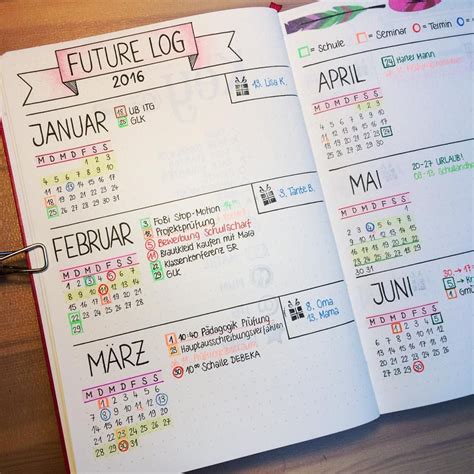 FUTURE LOG
2016
JANUAR
M D M D F S S
1 2 3
4 5 6 7 8 9 10
11 12 13 14 15 16 17
18 19 20 21 22 23 24
25 26 27 28 29 30 31
18 UB ITG
25 GLK
13. Lisa K.
FEBRUAR
M D M D F S S
1 2 3 4 5 6 7
8 9 10 11 12 13 14
15 16 17 18 19 20 21
22 23 24 25 26 27 28
29
FoBi Stop-Motion
Projektprüfung
5 Bewerbung Schulscharf
Brautkleid kaufen mit Maia
22 Klassenkonferenz SR
29 GLK
3. Tante B.
MÄRZ
M D M D F S S
1 2 3 4 5 6
7 8 9 10 11 12 13
14 15 16 17 18 19 20
21 22 23 24 25 26 27
28 29 30 31
1 10:40 Pädagogik Prüfung
Hauptausschreibungsverfahren
30 10:00 Schalz DEBEKA
8. Oma
13. Mama
=Schule =Seminar =Termin
APRIL
M D M D F S S
1 2 3
4 5 6 7 8 9 10
11 12 13 14 15 16 17
18 19 20 21 22 23 24
25 26 27 28 29 30
24 Halber Mann
MAI
M D M D F S S
1
2 3 4 5 6 7 8
9 10 11 12 13 14 15
16 17 18 19 20 21 22
23 24 25 26 27 28 29
30 31
20-27 URLAUB!
JUNI
M D M D F S S
1 2 3 4 5
6 7 8 9 10 11 12
13 14 15 16 17 18 19
20 21 22 23 24 25 26
27 28 29 30
30 → 17